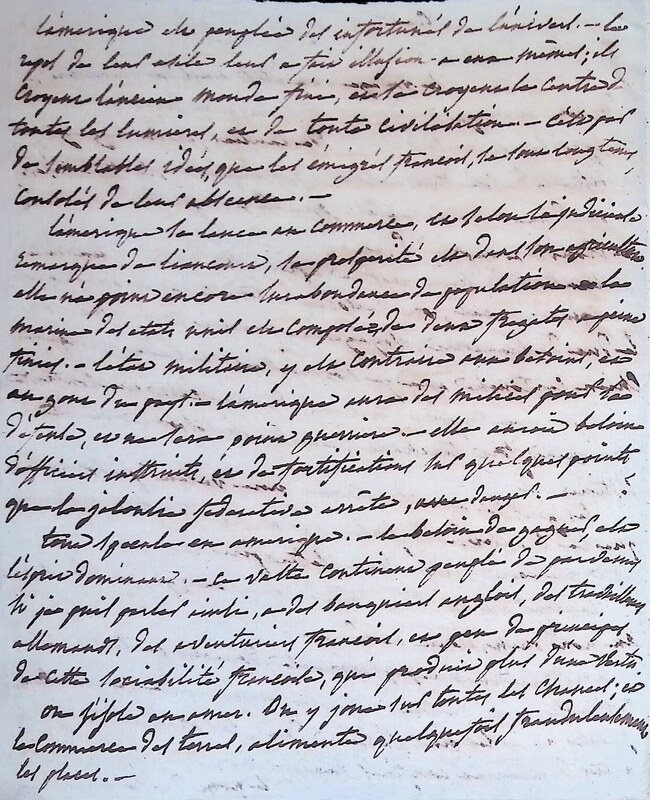 l'amérique est peuplée des infortunés de l'univers. – le
repos de leur asile leur a fait illusion a eux mêmes; ils
croyent l'ancien monde fini, et se croyent le centre de
toutes les lumieres, et de toute civilisation. – c'est par
de semblables idées, que les émigrés françois, se sont longtems,
consolés de leur absence. –
l'amérique se lance au commerce, et selon la judicieuse
remarque de liancourt, sa prosperité est dans son agriculture.
elle n'a point encore surabondance de population la
marine des etats unis est composée, de deux fregates a peine
finies. – l'état militaire, y est contraire aux besoins, et
au gout du pays. – l'amérique aura des milices pour sa
défense, et ne sera point guerriere. – elle auroit besoin
d'officiers instruits, et de fortifications sur quelques points
que la jalousie federative arrête, avec danger. –
tout specule en amerique. – le besoin de gagner, est
l'esprit dominant. – ce vaste continent peuplé de
si je puis parler ainsi, a des banquiers anglois, des
allemands, des aventuriers françois, et peu de principes
de cette sociabilité françoise, qui produit plus d'une vertu
on s'isole en amer. On y joue sur toutes les chances; et
le commerce des terres, alimente quelquefois frauduleusement
les places. –